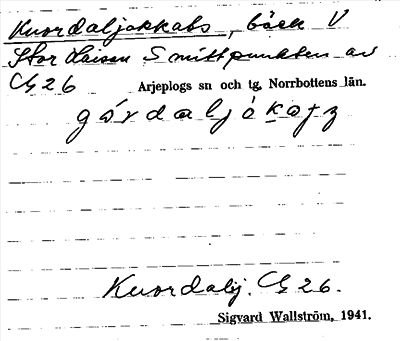 Kuordaljokkabs, bäck V
Stor Laisan S mittpunkten av
G 26 Arjeplogs sn och tg, Norrbottens län.
Kuordalj. G 26.
Sigvard Wallström, 1941.